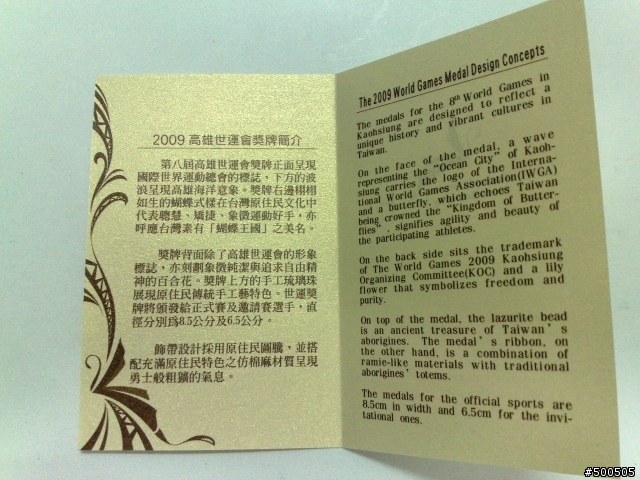 2009 高雄世運會獎牌簡介
第八屆高雄世運會獎牌正面呈現
國際世界運動總會的標誌，下方的波
浪呈現高雄海洋意象。獎牌右邊栩栩
如生的蝴蝶式樣在台灣原住民文化中
代表聰慧、矯捷、象徵運動好手，亦
呼應台灣素有「蝴蝶王國」之美名。
獎牌背面除了高雄世運會的形象
標誌，亦刻劃象徵純潔與追求自由精
神的百合花。獎牌上方的手工琉璃珠
展現原住民傳統手工藝特色。世運獎
牌將頒發給正式賽及邀請賽選手，直
徑分別為8.5公分及6.5公分。
飾帶設計採用原住民圖騰，並搭
配充滿原住民特色之仿棉麻材質呈現
勇士般粗獷的氣息。
The 2009 World Games Medal Design Concepts
The medals for the 8th World Games in
Kaohsiung are designed to reflect a
unique history and vibrant cultures in
Taiwan.
On the face of the medal, a wave
representing the "Ocean City" of Kaoh-
siung carries the logo of the Interna-
tional World Games Association(IWGA)
and a butterfly, which echoes Taiwan
being crowned the "Kingdom of Butter-
flies", signifies agility and beauty of
the participating athletes.
On the back side sits the trademark
of The World Games 2009 Kaohsiung
Organizing Committee(KOC) and a lily
flower that symbolizes freedom and
purity.
On top of the medal, the lazurite bead
is an ancient treasure of Taiwan's
aborigines. The medal's ribbon, on
the other hand, is a combination of
ramie-like materials with traditional
aborigines' totems.
The medals for the official sports are
8.5cm in width and 6.5cm for the invi-
tational ones.
#500505